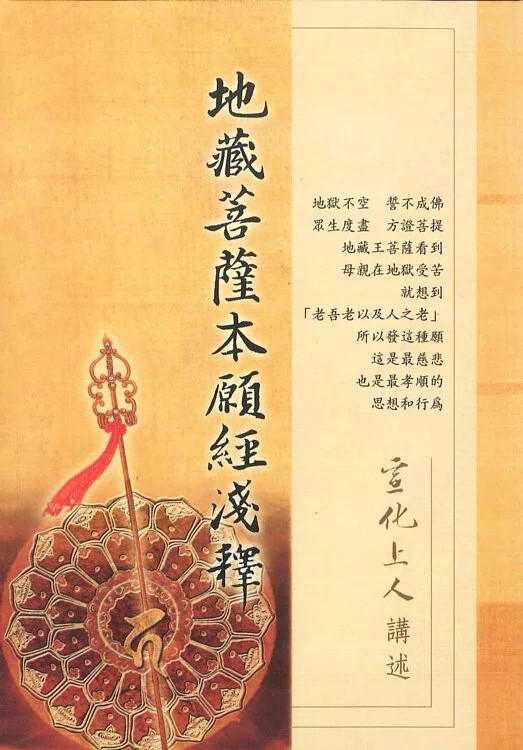 地藏菩薩本願經淺釋
地獄不空　誓不成佛
眾生度盡　方證菩提
地藏王菩薩看到
母親在地獄受苦
就想到
「老吾老以及人之老」
所以發這種願
這是最慈悲
也是最孝順的
思想和行為
宣化上人講述